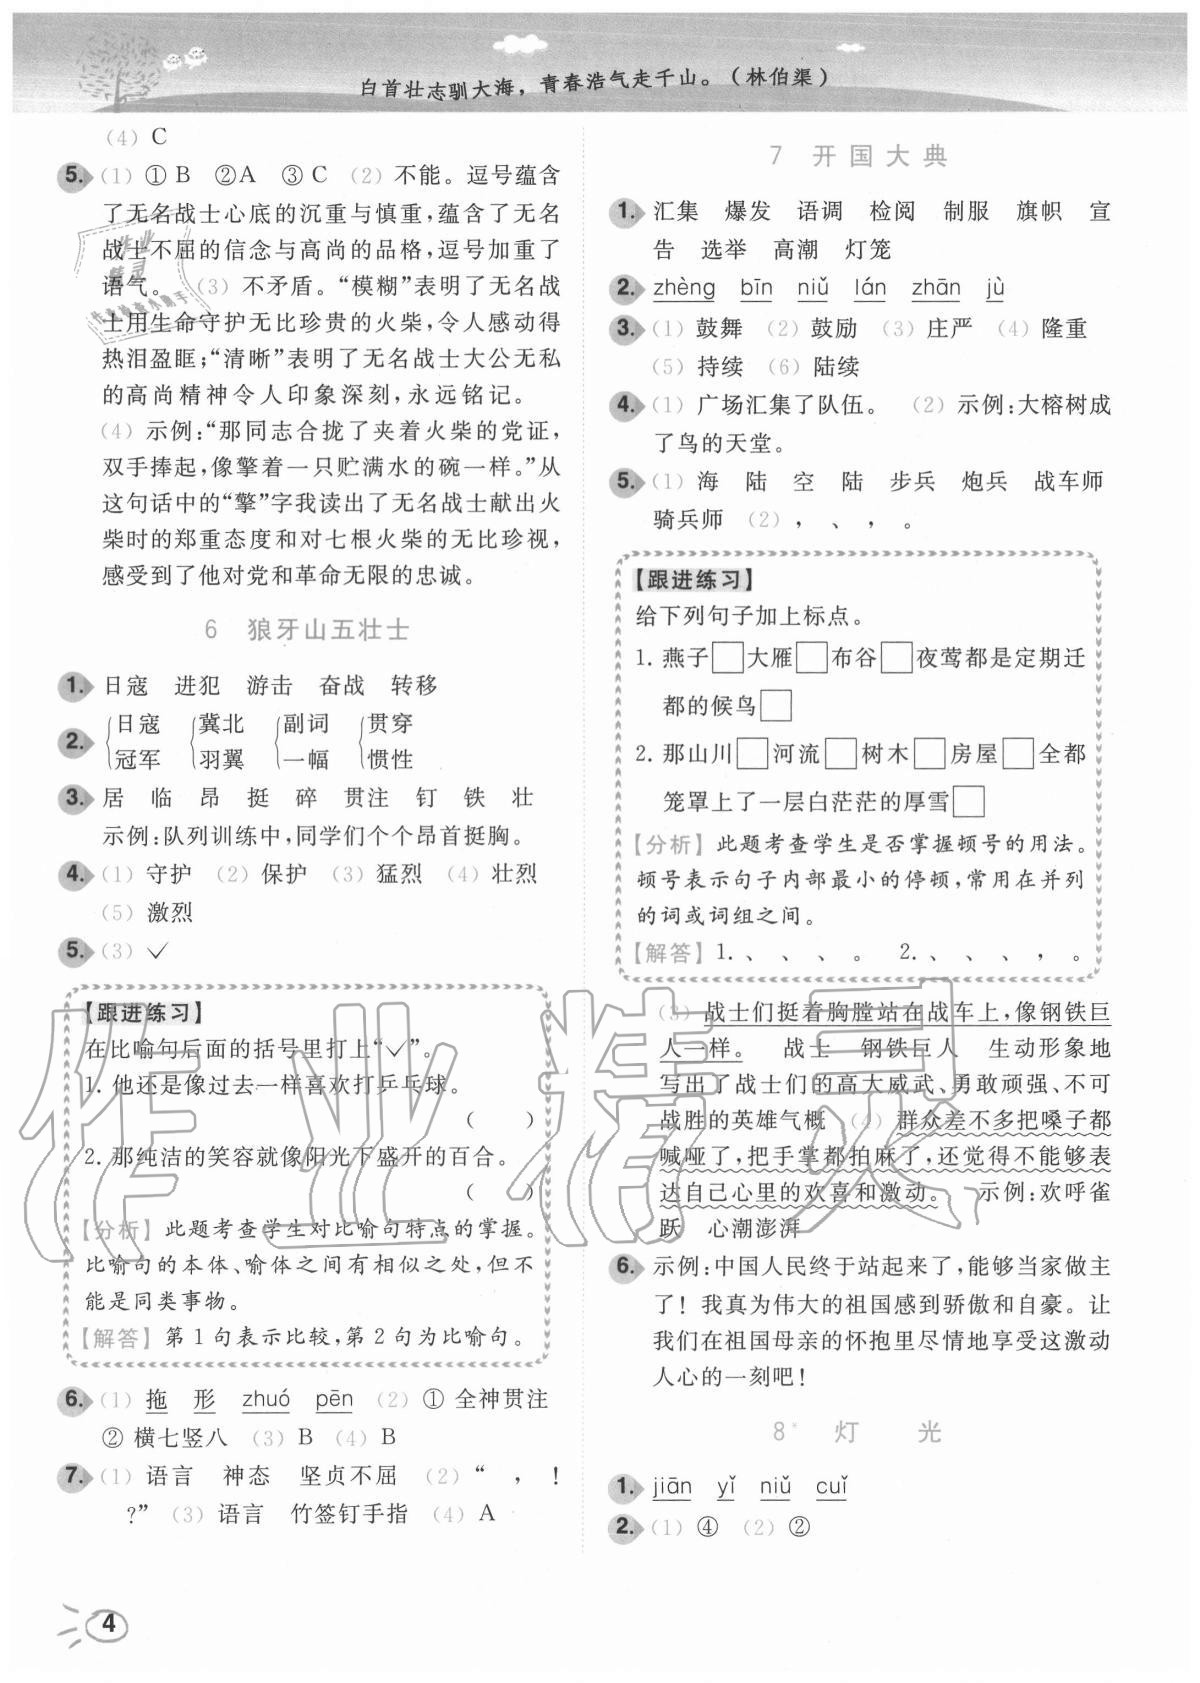 白首壮志驯大海，青春浩气走千山。（林伯渠）
(4) C
5. (1) ①B ②A ③C (2) 不能。逗号蕴含
了无名战士心底的沉重与慎重，蕴含了无名
战士不屈的信念与高尚的品格，逗号加重了
语气。 (3) 不矛盾。“模糊”表明了无名战
士用生命守护无比珍贵的火柴，令人感动得
热泪盈眶；“清晰”表明了无名战士大公无私
的高尚精神令人印象深刻，永远铭记。
(4) 示例：“那同志合拢了夹着火柴的党证，
双手捧起，像擎着一只贮满水的碗一样。”从
这句话中的“擎”字我读出了无名战士献出火
柴时的郑重态度和对七根火柴的无比珍视，
感受到了他对党和革命无限的忠诚。
6 狼牙山五壮士
1. 日寇 进犯 游击 奋战 转移
2. 日寇 冀北 副词 贯穿
冠军 羽翼 一幅 惯性
3. 居 临 昂 挺 碎 贯注 钉 铁 壮
示例：队列训练中，同学们个个昂首挺胸。
4. (1) 守护 (2) 保护 (3) 猛烈 (4) 壮烈
(5) 激烈
5. (3) ✓
【跟进练习】
在比喻句后面的括号里打上“✓”。
1. 他还是像过去一样喜欢打乒乓球。
( )
2. 那纯洁的笑容就像阳光下盛开的百合。
( )
【分析】此题考查学生对比喻句特点的掌握。
比喻句的本体、喻体之间有相似之处，但不
能是同类事物。
【解答】第1句表示比较，第2句为比喻句。
6. (1) 拖 形 zhuó pēn (2) ① 全神贯注
② 横七竖八 (3) B (4) B
7. (1) 语言 神态 坚贞不屈 (2) “ ， ！
？” (3) 语言 竹签钉手指 (4) A
7 开国大典
1. 汇集 爆发 语调 检阅 制服 旗帜 宣
告 选举 高潮 灯笼
2. zhèng bīn niǔ lán zhān jù
3. (1) 鼓舞 (2) 鼓励 (3) 庄严 (4) 隆重
(5) 持续 (6) 陆续
4. (1) 广场汇集了队伍。 (2) 示例：大榕树成
了鸟的天堂。
5. (1) 海 陆 空 陆 步兵 炮兵 战车师
骑兵师 (2) ， 、 ， 。
【跟进练习】
给下列句子加上标点。
1. 燕子□大雁□布谷□夜莺都是定期迁
都的候鸟□
2. 那山川□河流□树木□房屋□全都
笼罩上了一层白茫茫的厚雪□
【分析】此题考查学生是否掌握顿号的用法。
顿号表示句子内部最小的停顿，常用在并列
的词或词组之间。
【解答】1. 、 、 、 。 2. 、 、 、 ， 。
(3) 战士们挺着胸膛站在战车上，像钢铁巨
人一样。 战士 钢铁巨人 生动形象地
写出了战士们的高大威武、勇敢顽强、不可
战胜的英雄气概 (4) 群众差不多把嗓子都
喊哑了，把手掌都拍麻了，还觉得不能够表
达自己心里的欢喜和激动。 示例：欢呼雀
跃 心潮澎湃
6. 示例：中国人民终于站起来了，能够当家做主
了！我真为伟大的祖国感到骄傲和自豪。让
我们在祖国母亲的怀抱里尽情地享受这激动
人心的一刻吧！
8* 灯 光
1. jiān yǐ niǔ cuǐ
2. (1) ④ (2) ②
4
作业精灵